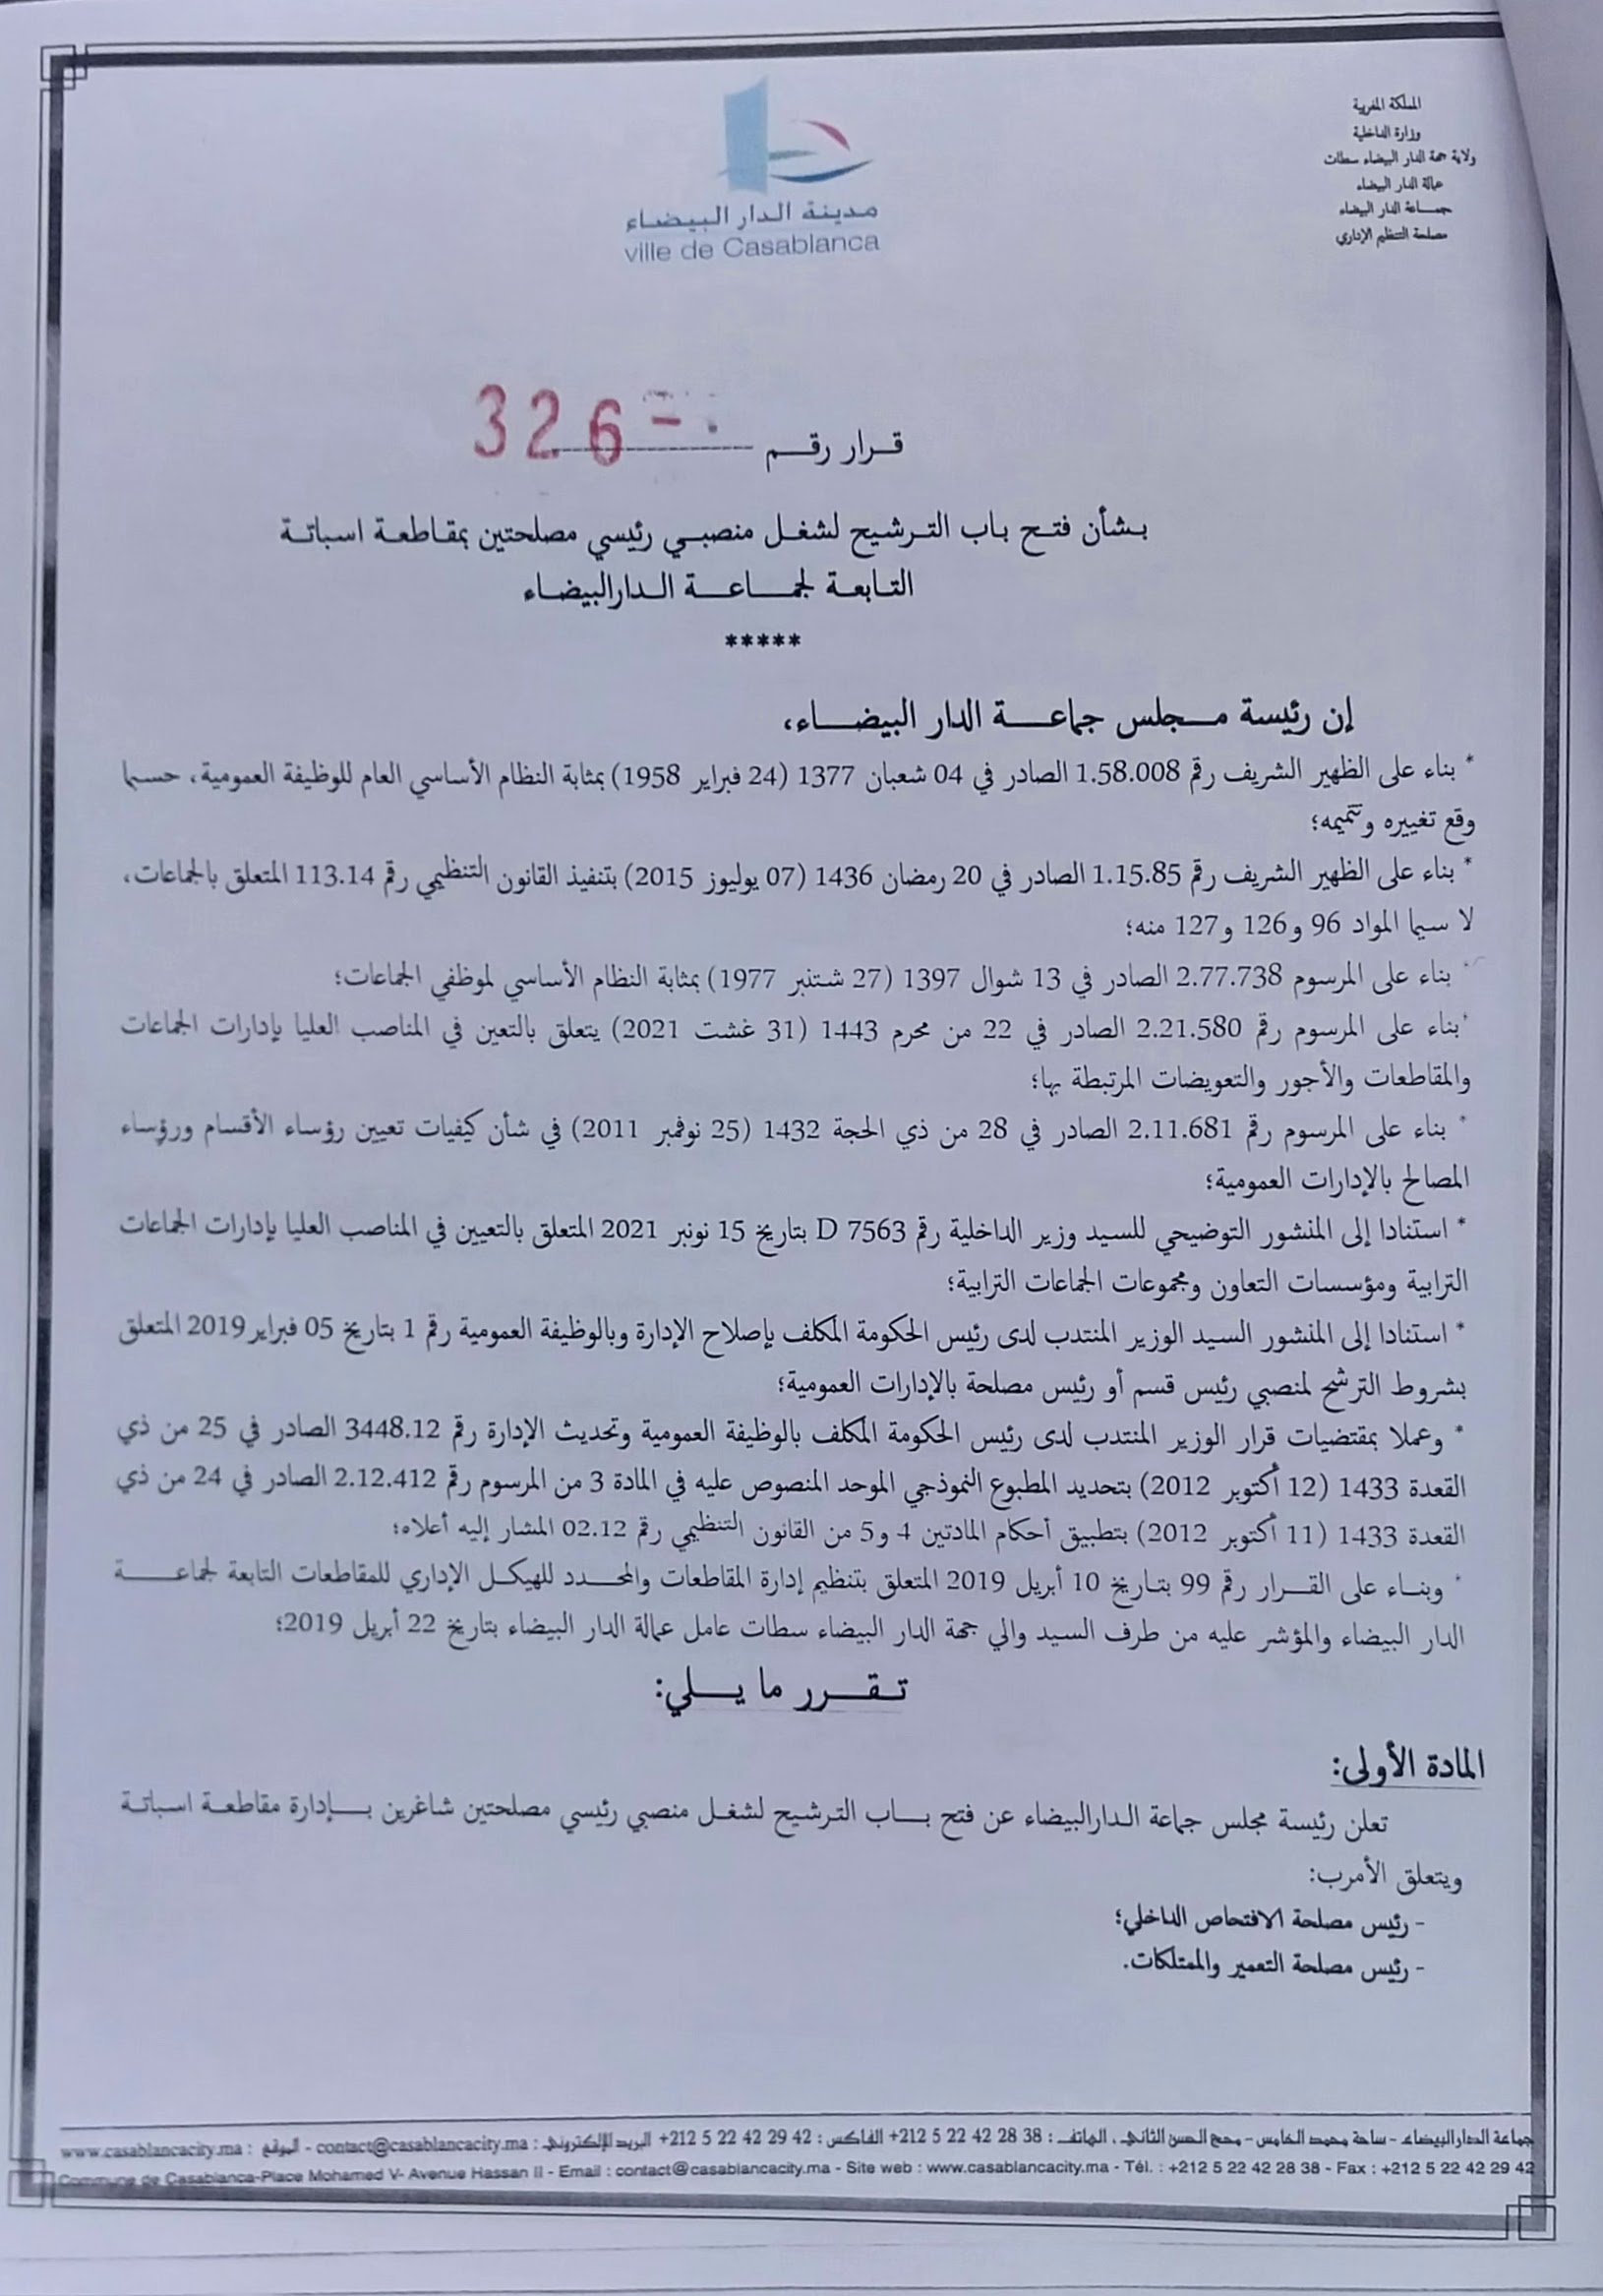 المملكة المغربية
وزارة الداخلية
ولاية جهة الدار البيضاء سطات
عمالة الدار البيضاء
جمـاعة الدار البيضاء
مصلحة التنظيم الإداري
مدينة الدار البيضاء
ville de Casablanca
قـرار رقـم 326
بـشأن فتـح باب التـرشيح لشغـل منصبـي رئيسي مصلحتين بمقاطعـة اسباتـة
التـابعـة لجمـاعـة الـدارالبيضـاء
*****
إن رئيسة مـجلس جماعـة الدار البيضـاء،
* بناء على الظهير الشريف رقم 1.58.008 الصادر في 04 شعبان 1377 (24 فبراير 1958) بمثابة النظام الأساسي العام للوظيفة العمومية، حسبما
وقع تغييره وتتميمه؛
* بناء على الظهير الشريف رقم 1.15.85 الصادر في 20 رمضان 1436 (07 يوليوز 2015) بتنفيذ القانون التنظيمي رقم 113.14 المتعلق بالجماعات،
لا سيما المواد 96 و126 و127 منه؛
بناء على المرسوم 2.77.738 الصادر في 13 شوال 1397 (27 شتنبر 1977) بمثابة النظام الأساسي لموظفي الجماعات؛
* بناء على المرسوم رقم 2.21.580 الصادر في 22 من محرم 1443 (31 غشت 2021) يتعلق بالتعين في المناصب العليا بإدارات الجماعات
والمقاطعات والأجور والتعويضات المرتبطة بها؛
* بناء على المرسوم رقم 2.11.681 الصادر في 28 من ذي الحجة 1432 (25 نوفمبر 2011) في شأن كيفيات تعيين رؤساء الأقسام ورؤساء
المصالح بالإدارات العمومية؛
* استنادا إلى المنشور التوضيحي للسيد وزير الداخلية رقم D 7563 بتاريخ 15 نونبر 2021 المتعلق بالتعيين في المناصب العليا بإدارات الجماعات
الترابية ومؤسسات التعاون ومجموعات الجماعات الترابية؛
* استنادا إلى المنشور السيد الوزير المنتدب لدى رئيس الحكومة المكلف بإصلاح الإدارة وبالوظيفة العمومية رقم 1 بتاريخ 05 فبراير2019 المتعلق
بشروط الترشح لمنصبي رئيس قسم أو رئيس مصلحة بالإدارات العمومية؛
* وعملا بمقتضيات قرار الوزير المنتدب لدى رئيس الحكومة المكلف بالوظيفة العمومية وتحديث الإدارة رقم 3448.12 الصادر في 25 من ذي
القعدة 1433 (12 أكتوبر 2012) بتحديد المطبوع النموذجي الموحد المنصوص عليه في المادة 3 من المرسوم رقم 2.12.412 الصادر في 24 من ذي
القعدة 1433 (11 أكتوبر 2012) بتطبيق أحكام المادتين 4 و5 من القانون التنظيمي رقم 02.12 المشار إليه أعلاه؛
* وبنـاء على القـرار رقم 99 بتـاريخ 10 أبريل 2019 المتعلق بتنظيم إدارة المقاطعات والمحـدد للهيكـل الإداري للمقاطعات التابعة لجماعـة
الدار البيضاء والمؤشر عليه من طرف السيد والي جهة الدار البيضاء سطات عامل عمالة الدار البيضاء بتاريخ 22 أبريل 2019؛
تـقـرر ما يـلي:
المادة الأولى:
تعلن رئيسة مجلس جماعة الـدارالبيضاء عن فتح بـاب الترشيح لشغـل منصبي رئيسي مصلحتين شاغرين بـإدارة مقاطعـة اسباتـة
ويتعلق الأمرب:
- رئيس مصلحة الافتحاص الداخلي؛
- رئيس مصلحة التعمير والممتلكات.
جماعة الدارالبيضاء - ساحة محمد الخامس - محج الحسن الثاني، الهاتف : 38 28 42 22 5 212+ الفاكس : 42 29 42 22 5 212+ البريد الإلكتروني : contact@casablancacity.ma - الموقع : www.casablancacity.ma
Commune de Casablanca-Place Mohamed V- Avenue Hassan II - Email : contact@casablancacity.ma - Site web : www.casablancacity.ma - Tél. : +212 5 22 42 28 38 - Fax : +212 5 22 42 29 42